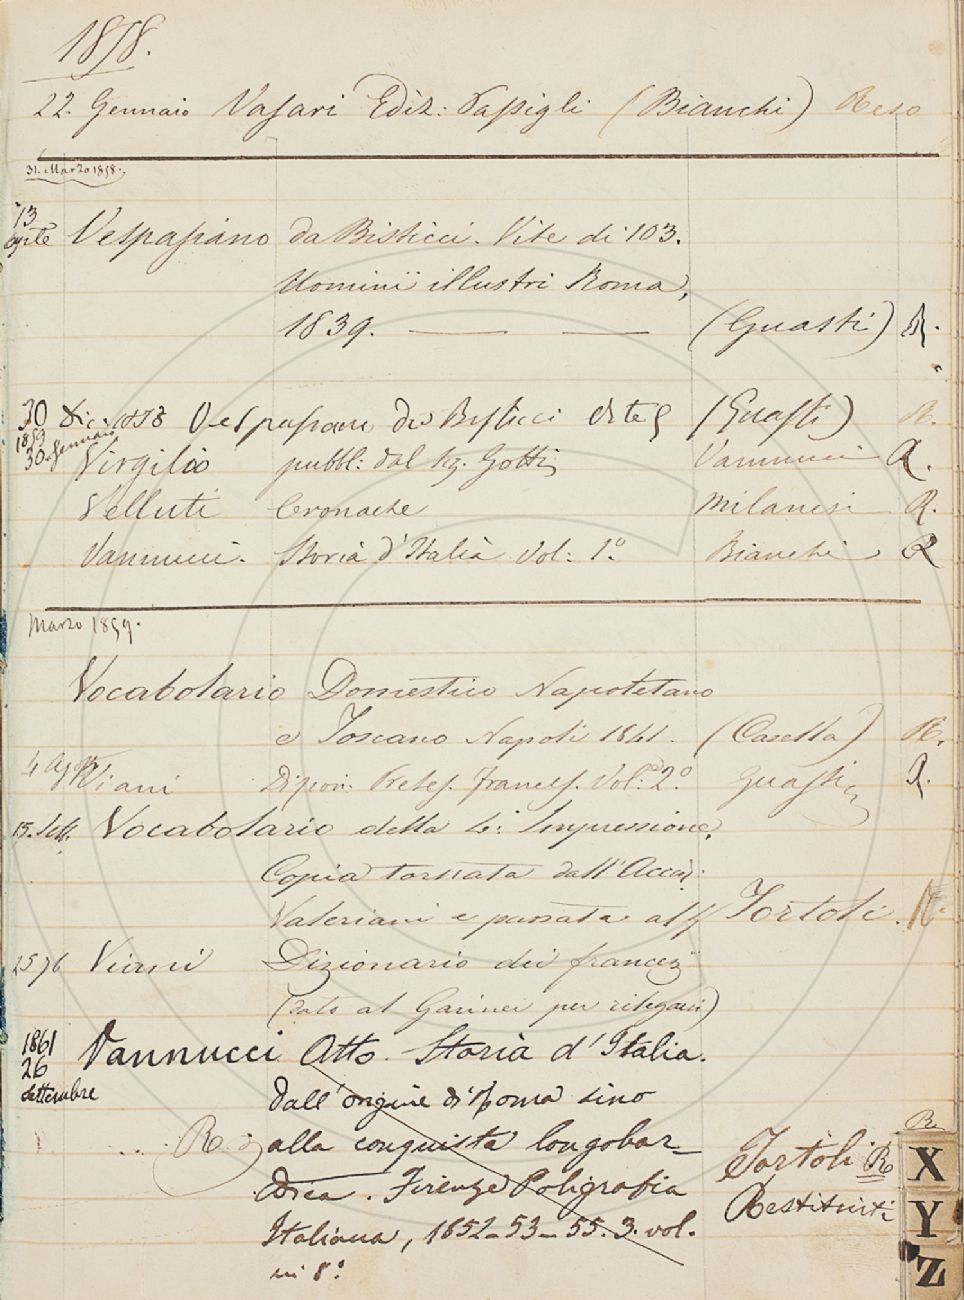 1858.
22. Gennaio Vasari Ediz: Passigli (Bianchi) Reso
31. Marzo 1858.
13 Aprile Vespasiano da Bisticci. Vite di 103.
Uomini illustri Roma,
1839. (Guasti) R.
30 Dic. 1858 Vespasiano da Bisticci Vite (Guasti) R.
1859
30. Gennaio Virgilio pubbl: dal Sig. Gotti Vannucci R.
Velluti Cronache Milanesi R.
Vannucci. Storia d'Italia Vol: 1.° Bianchi R
Marzo 1859.
Vocabolario Domestico Napoletano
e Toscano Napoli 1841. (Casella) R.
4 Ag Viani Dizion: Pretes. Frances. Vol: 2.° Guasti R.
15. Sett. Vocabolario della 4.ª Impressione,
Copia tornata dall'Accad:
Valeriani e passata al Tortoli. R.
25 Viani Dizionario dei francez
(dato al Garinei per rilegarsi)
1861
26
Settembre
Vannucci Atto. Storia d'Italia.
dall'origine di Roma sino
R. alla conquista longobar-
dica. Firenze Poligrafia
Italiana, 1852-53-55. 3. vol.
in 8.°
Tortoli R
Restituiti
R.
X
Y
Z